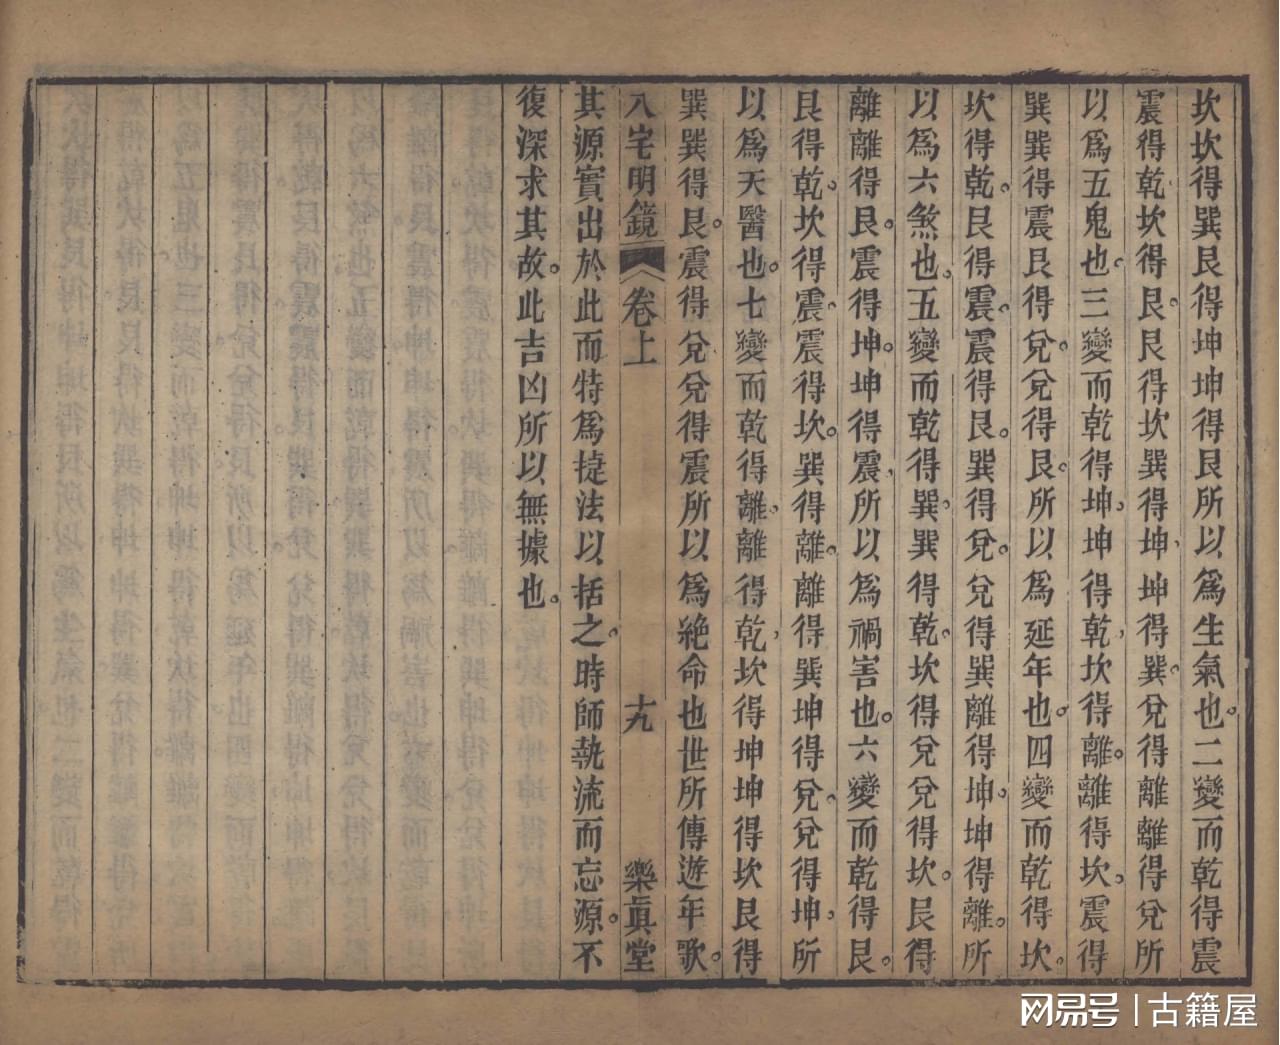 坎坎得巽艮得坤坤得艮所以爲生氣也。二變而乾得震
震得乾坎得艮。艮得坎巽得坤、坤得巽。兌得離離得兌所
以爲五鬼也。三變而乾得坤、坤得乾、坎得離。離得坎、震得
巽巽得震艮得兌。兌得艮。所以爲延年也。四變而乾得坎。
坎得乾。艮得震。震得艮。巽得兌。兌得巽離得坤、坤得離。所
以爲六煞也。五變而乾得巽。巽得乾。坎得兌兌得坎。艮得
離離得艮。震得坤。坤得震、所以爲禍害也。六變而乾得艮。
艮得乾。坎得震。震得坎。巽得離。離得巽坤得兌。兌得坤、所
以爲天醫也。七變而乾得離、離得乾、坎得坤坤得坎艮得
巽巽得艮。震得兌兌得震所以爲絕命也世所傳遊年歌。
八宅明鏡 卷上 十九 樂眞堂
其源實出於此而特爲捷法以括之。時師執流而忘源。不
復深求其故。此吉凶所以無據也。
网易号 | 古籍屋